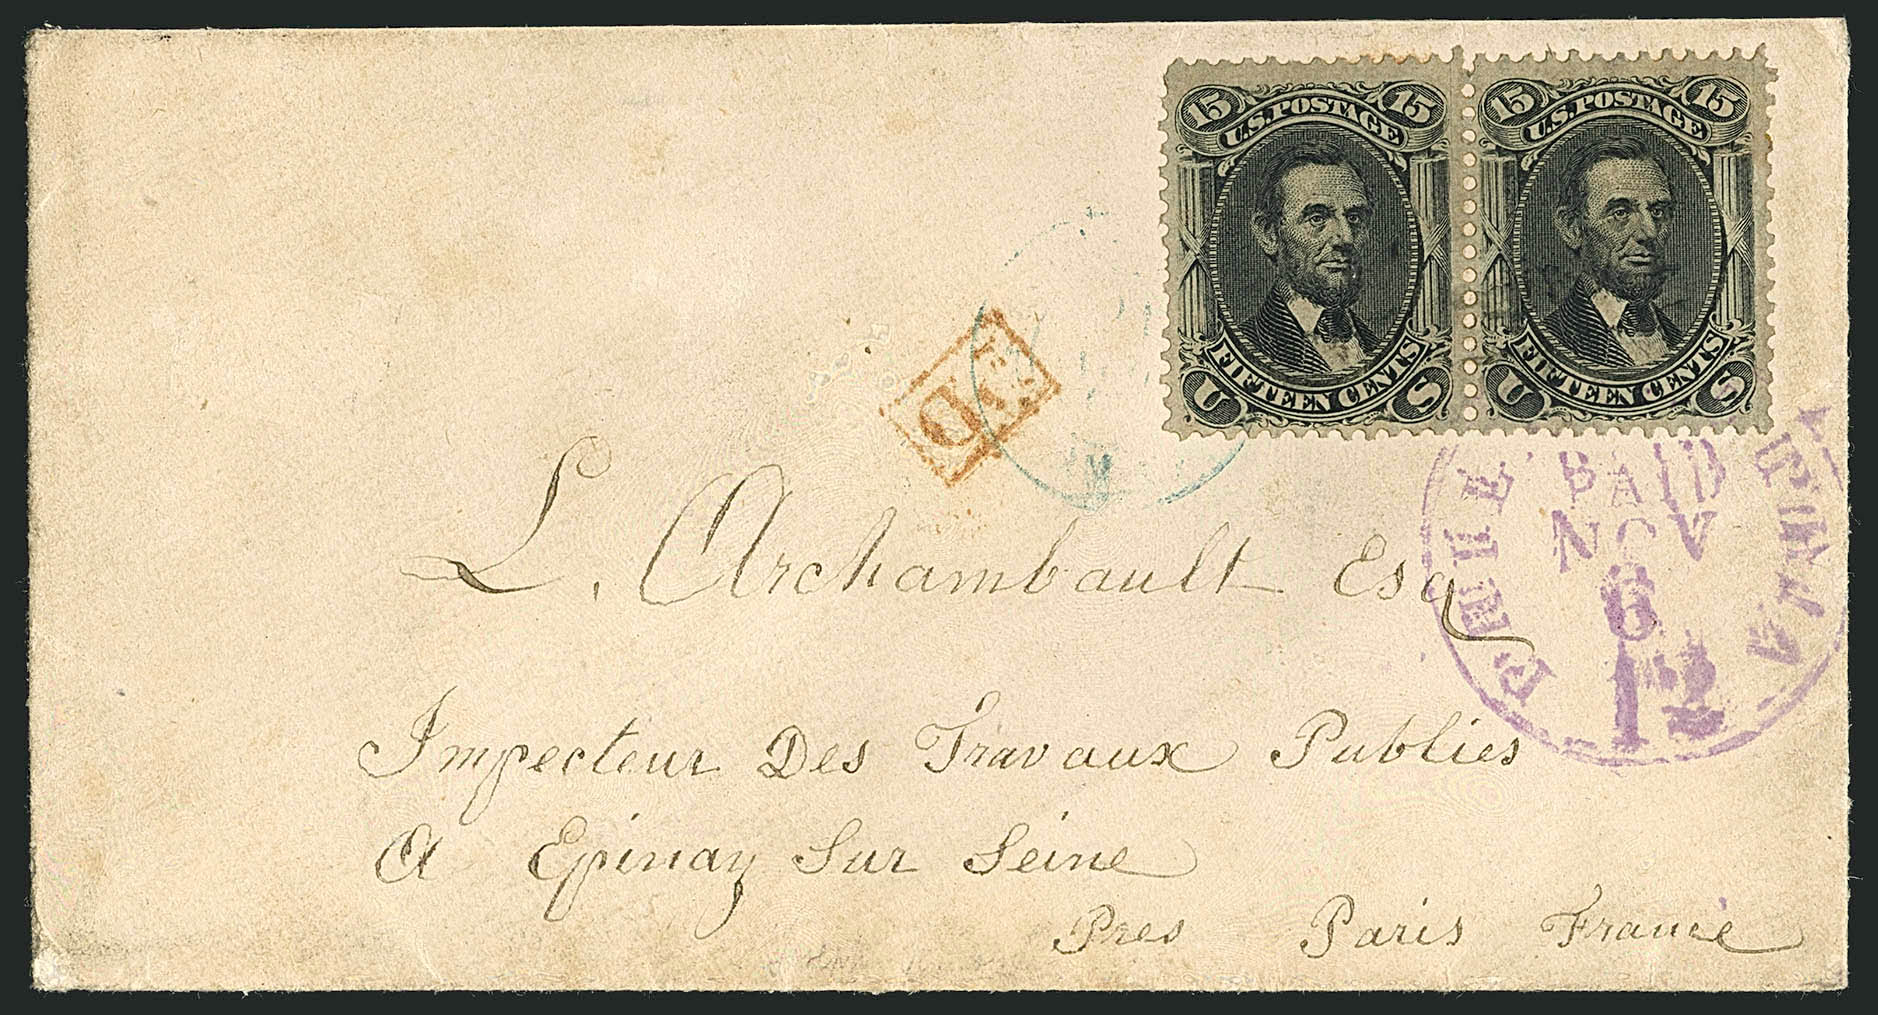 15 U.S. POSTAGE 15
FIFTEEN CENTS
U S
15 U.S. POSTAGE 15
FIFTEEN CENTS
U S
PD
PAID
NOV
6
12
L. Archambault Esq
Impecteur Des Travaux Publics
A Epinay Sur Seine
Pres Paris France